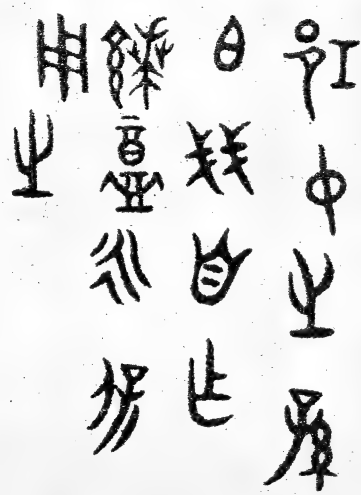 邛中之孫
白戔自乍
饙永保
用之